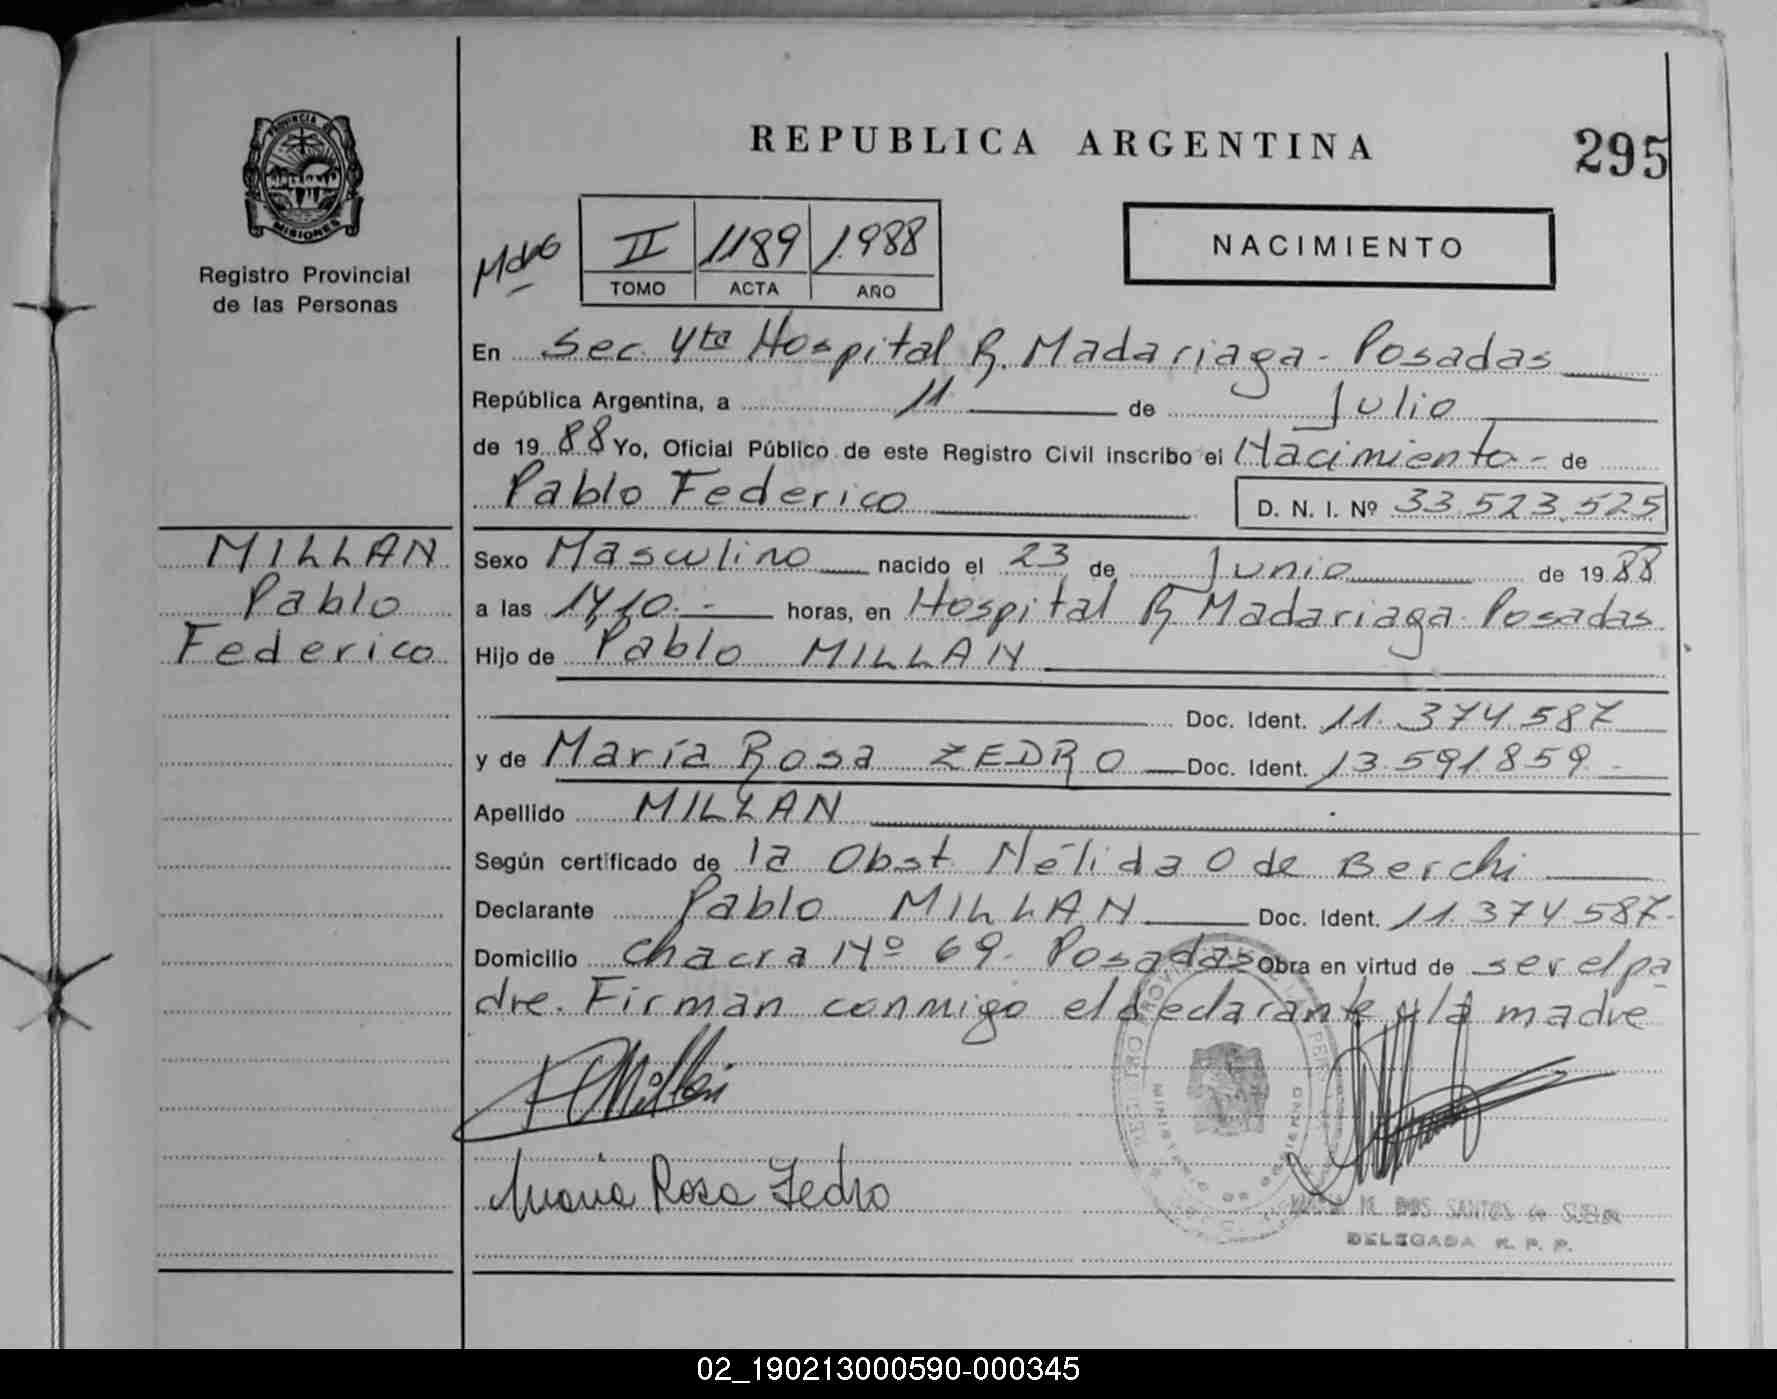 PROVINCIA DE
MISIONES
Registro Provincial
de las Personas
MILLAN
Pablo
Federico
REPUBLICA ARGENTINA
295
II 1189 1.988
TOMO ACTA AÑO
NACIMIENTO
En Sec 4ta Hospital R. Madariaga - Posadas
República Argentina, a 11 de Julio
de 19 88 Yo, Oficial Público de este Registro Civil inscribo el Nacimiento - de
Pablo Federico
D. N. I. Nº 33.523.525
Sexo Masculino nacido el 23 de Junio de 19 88
a las 14,10 - horas, en Hospital R Madariaga Posadas
Hijo de Pablo MILLAN
Doc. Ident. 11.374.587
y de María Rosa ZEDRO Doc. Ident. 13.591.859 -
Apellido MILLAN
Según certificado de la Obst Nélida O de Berchi
Declarante Pablo MILLAN Doc. Ident. 11.374.587-
Domicilio Chacra Nº 69- Posadas Obra en virtud de ser el pa
dre. Firman conmigo el declarante y la madre
Millan
Maria Rosa Zedro
MINISTERIO DE GOBIERNO
DOS SANTOS de
DELEGADA R. P. P.
02_190213000590-000345